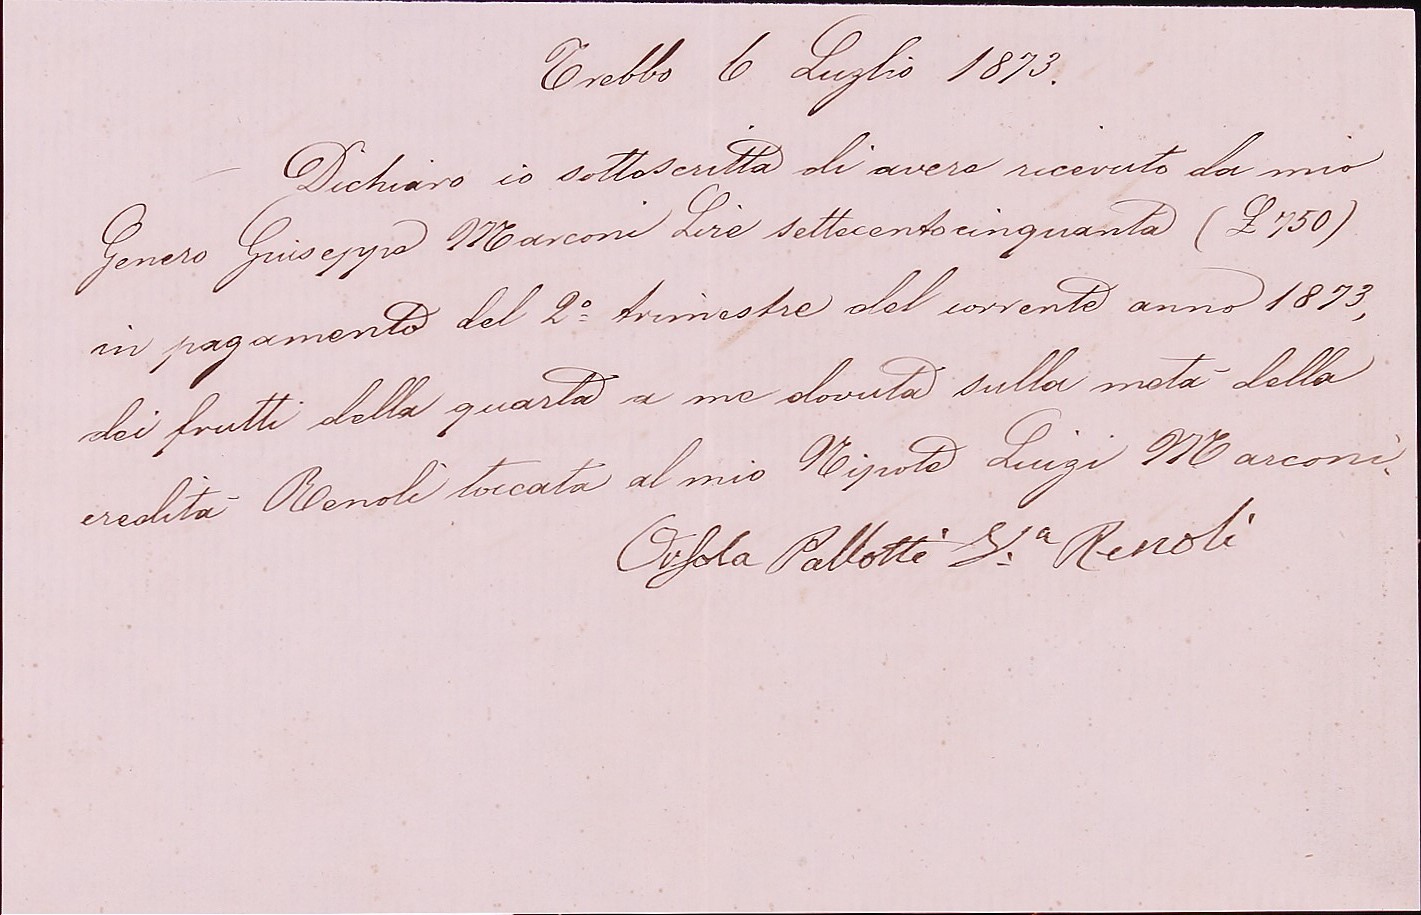 Trebbo 6 Luglio 1873.
Dichiaro io sottoscritta di avere ricevuto da mio
Genero Giuseppe Marconi Lire settecentocinquanta (£ 750)
in pagamento del 2º trimestre del corrente anno 1873,
dei frutti della quarta a me dovuta sulla metà della
eredità Renoli toccata al mio Nipote Luigi Marconi.
Orsola Pallotti V.ª Renoli